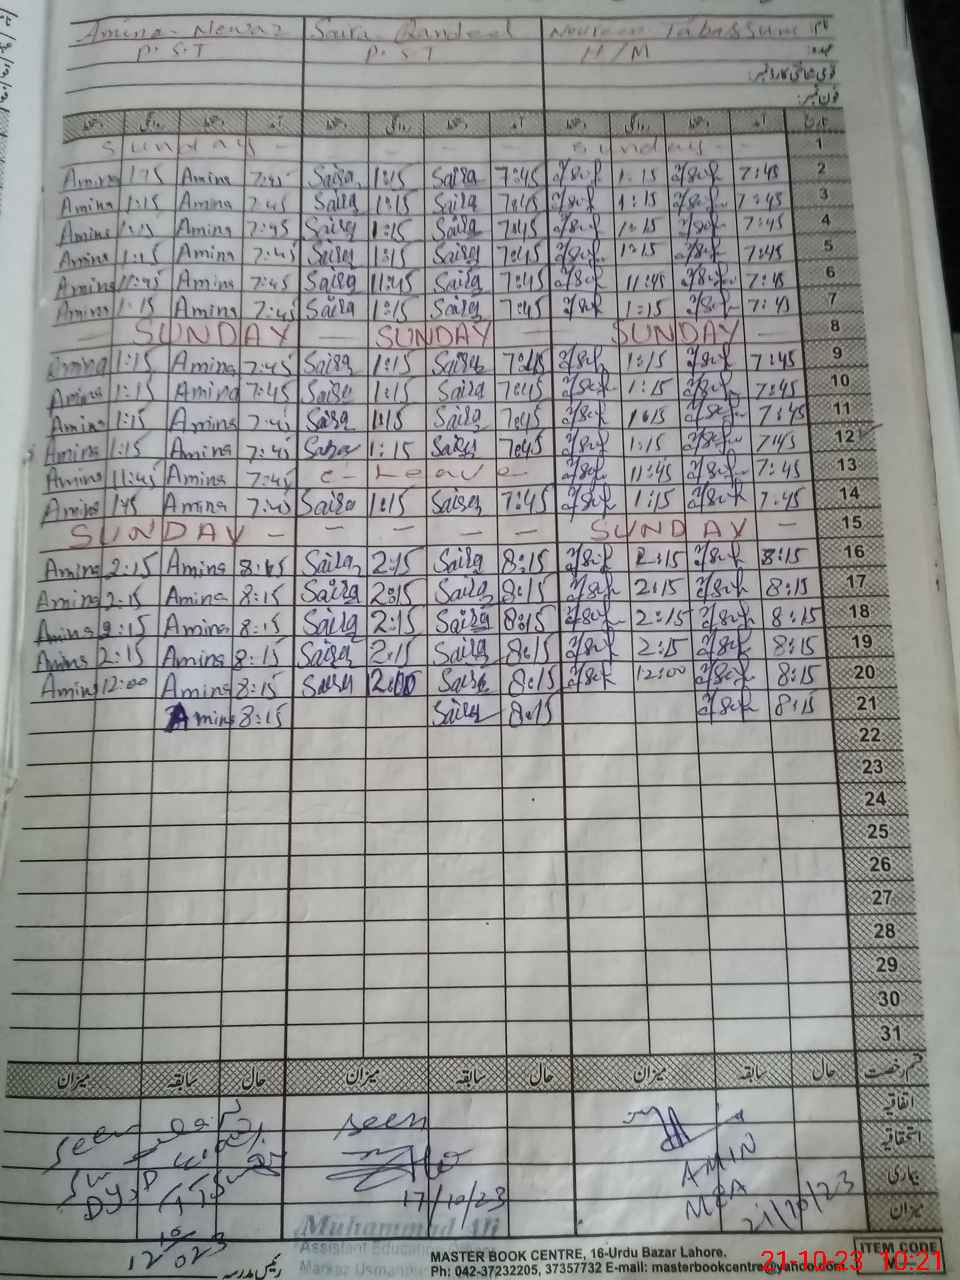 Amina Nawaz Saira Qandeel Noureen Tabassum نام
P.S.T P.S.T H/M عہدہ
قومی شناختی کارڈ نمبر:
فون نمبر:
دستخط روانگی دستخط آمد دستخط روانگی دستخط آمد دستخط روانگی دستخط آمد تاریخ
Sunday - - - - - Sunday - - 1
Amina 1:15 Amina 7:45 Saira 1:15 Saira 7:45 1:15 7:45 2
Amina 1:15 Amina 7:45 Saira 1:15 Saira 7:45 1:15 7:45 3
Amina 1:15 Amina 7:45 Saira 1:15 Saira 7:45 1:15 7:45 4
Amina 1:15 Amina 7:45 Saira 1:15 Saira 7:45 1:15 7:45 5
Amina 11:45 Amina 7:45 Saira 11:45 Saira 7:45 11:45 7:45 6
Amina 1:15 Amina 7:45 Saira 1:15 Saira 7:45 1:15 7:45 7
— SUNDAY — SUNDAY — SUNDAY — 8
Amina 1:15 Amina 7:45 Saira 1:15 Saira 7:45 1:15 7:45 9
Amina 1:15 Amina 7:45 Saira 1:15 Saira 7:45 1:15 7:45 10
Amina 1:15 Amina 7:45 Saira 1:15 Saira 7:45 1:15 7:45 11
Amina 1:15 Amina 7:45 Saira 1:15 Saira 7:45 1:15 7:45 12
Amina 11:45 Amina 7:45 C - Leave - 11:45 7:45 13
Amina Amina 7:45 Saira 1:15 Saira 7:45 1:15 7:45 14
SUNDAY - - - - - SUNDAY - 15
Amina 2:15 Amina 8:15 Saira 2:15 Saira 8:15 2:15 8:15 16
Amina 2:15 Amina 8:15 Saira 2:15 Saira 8:15 2:15 8:15 17
Amina 2:15 Amina 8:15 Saira 2:15 Saira 8:15 2:15 8:15 18
Amina 2:15 Amina 8:15 Saira 2:15 Saira 8:15 2:15 8:15 19
Amina 12:00 Amina 8:15 Saira 12:00 Saira 8:15 12:00 8:15 20
Amina 8:15 Saira 8:15 8:15 21
22
23
24
25
26
27
28
29
30
31
میزان سابقہ حال میزان سابقہ حال میزان سابقہ حال قسم رخصت
اتفاقیہ
Seen Seen استحقاقیہ
AMIN بیماری
17/10/23 MEA 21/10/23 میزان
Muhammad Ali
Assistant Education
Markaz Usman
رئیس مدرسہ
MASTER BOOK CENTRE, 16-Urdu Bazar Lahore.
Ph: 042-37232205, 37357732 E-mail: masterbookcentre@yahoo.com
ITEM CODE
21.10.23 10:21